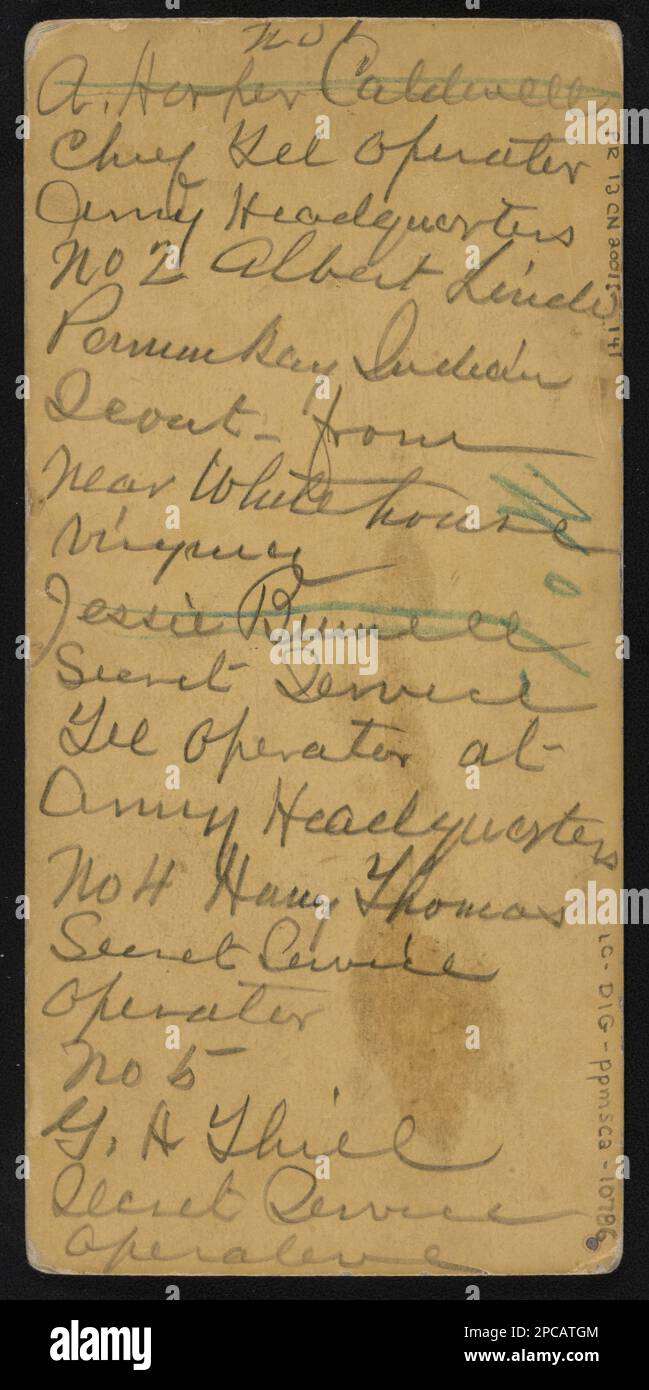 No 1
A. Harper Caldwell
Chief Tel Operator
Army Headquarters
No 2 Albert Linde
Pamunkay Indian
Scout - from
near White house
Virginia
No.
Jessie Bunnell
Secret Service
Tel Operator at
Army Headquarters
No 4 Harry Thomas
Secret Service
Operator
No 5
G. H Thiel
Secret Service
operative
PR 13 CN 2001:5 141
LC-DIG-ppmsca-10786
a alamy
Image ID: 2PCATGM
www.alamy.com